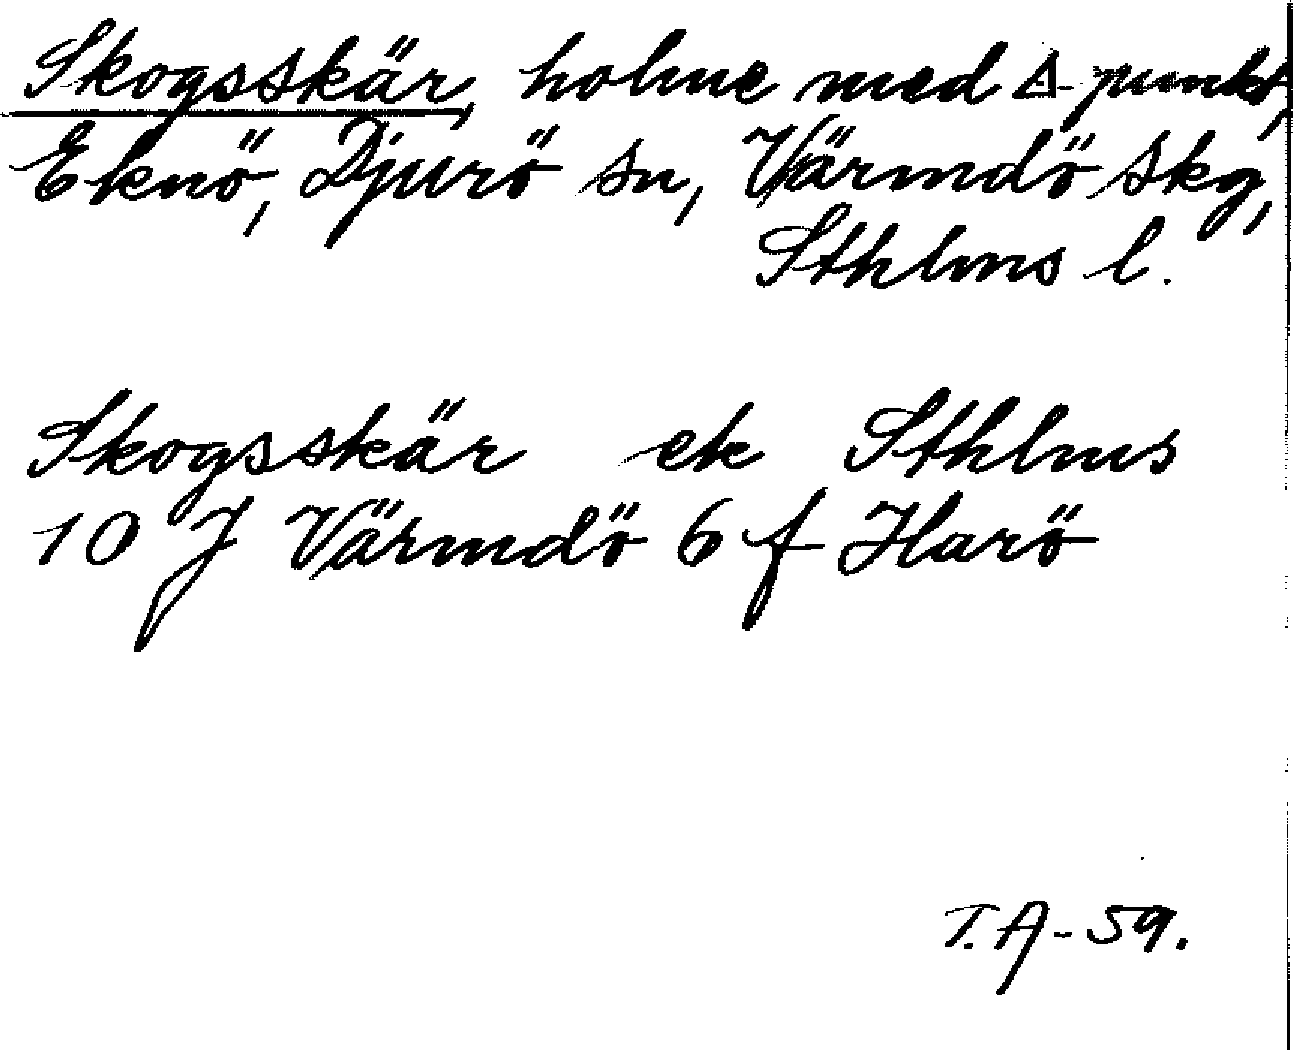 Skogsskär, holme med Δ-punkt,
Eknö, Djurö sn, Värmdö skg,
Sthlms l.
Skogsskär ek Sthlms
10 J Värmdö 6 f Harö
T.A-59.